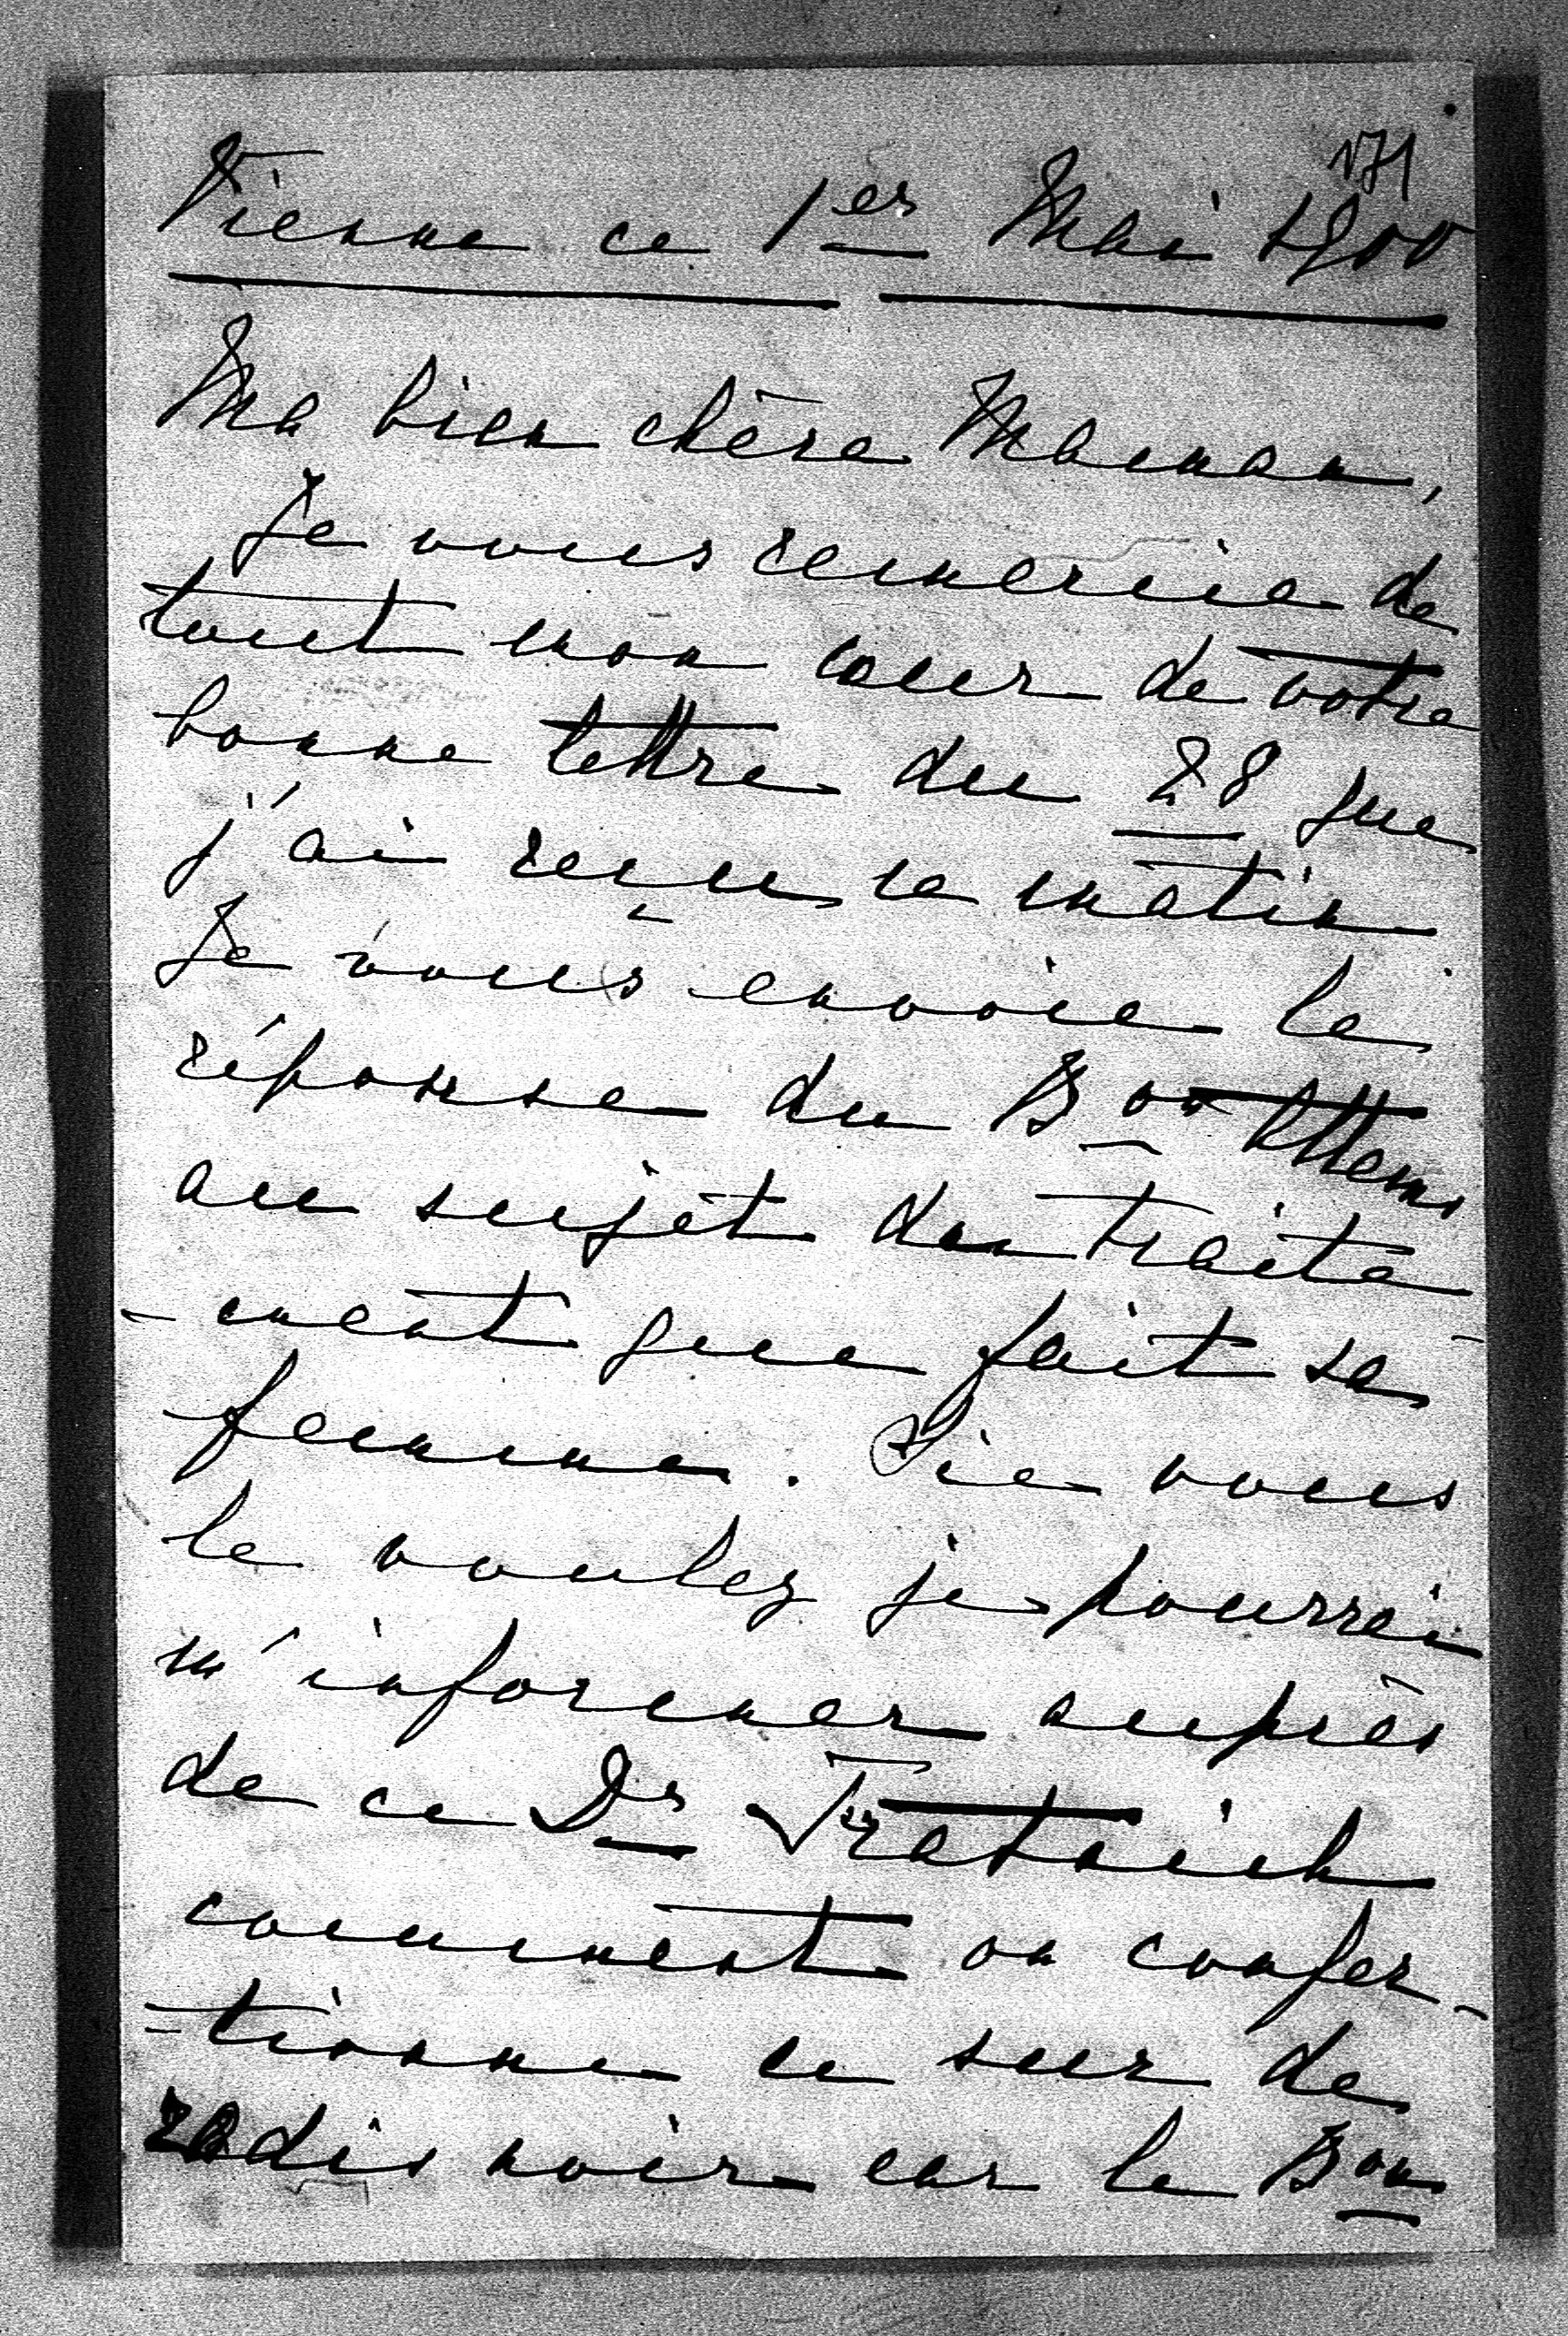 171
Vienne ce 1er Mai 1900
Ma bien chère Maman,
Je vous remercie de
tout mon cœur de votre
bonne lettre du 28 que
j'ai reçue ce matin
Je vous envoie la
réponse du Bon Attems
au sujet du traite
-ment que fait sa
femme. Sie vous
le voulez je pourrai
m'informer auprès
de ce Dr
comment on confec-
-tionne ce suc de
radis noir car le Bon